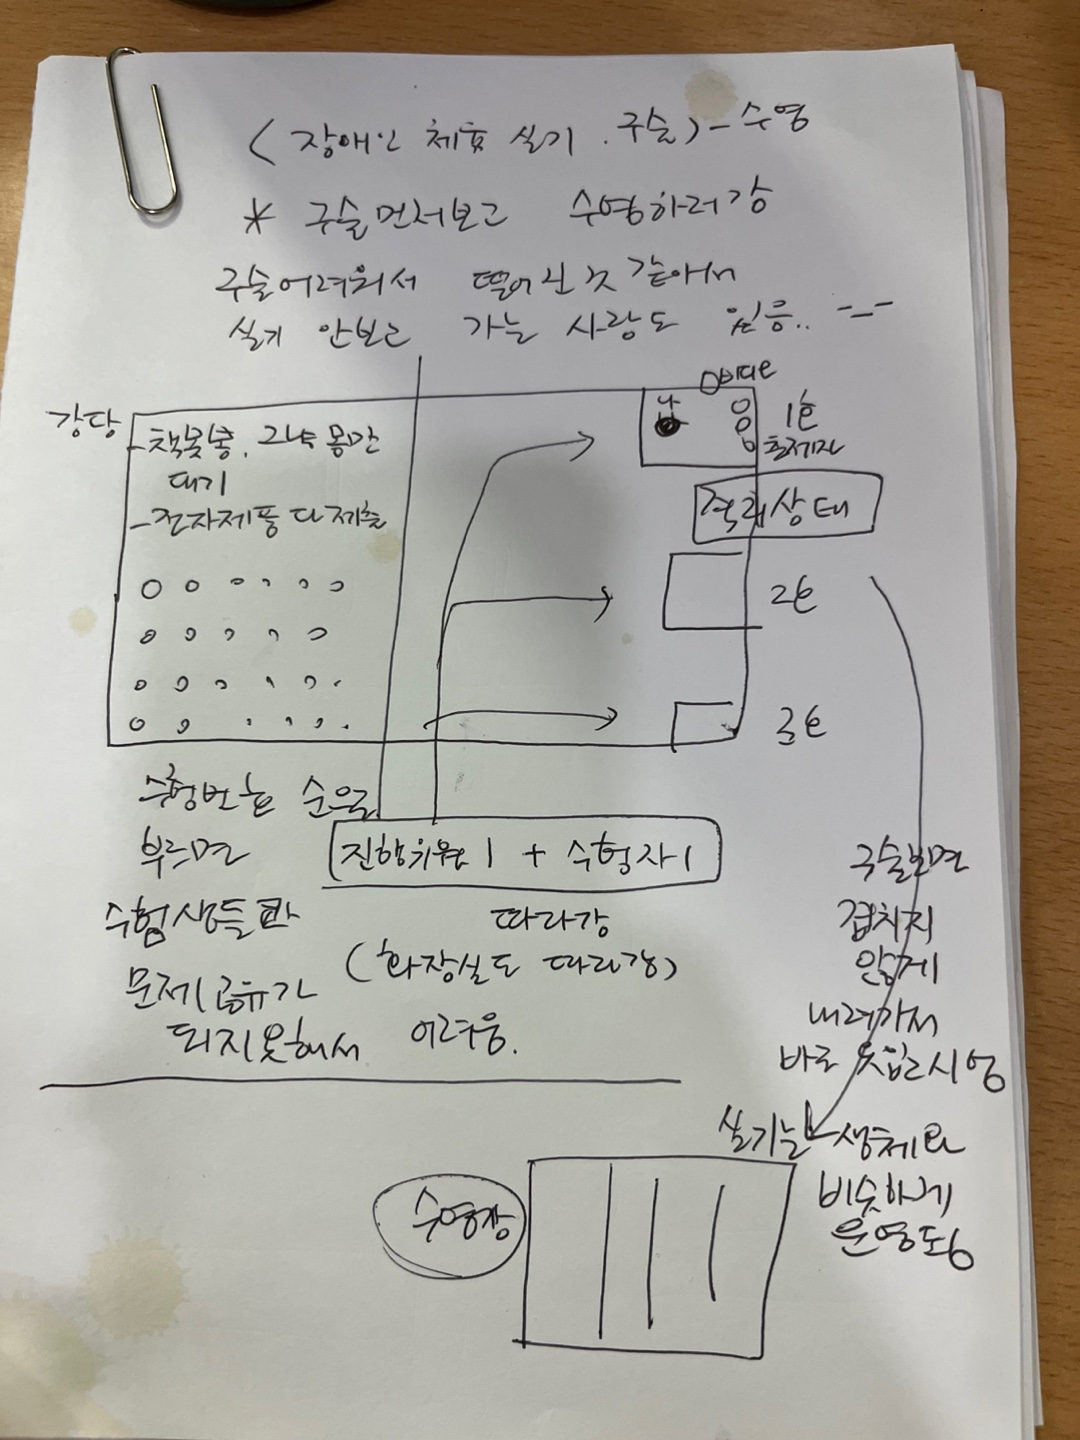 (장애인 체육 실기.구술) - 수영
* 구술먼저보고 수영하러감
구술어려워서 떨어진것 같아서
실기 안보고 가는 사람도 있음.. -_-
강당
- 책못봄, 그냥 몸만
대기
- 전자제품 다 제출
비디오
나
1호
출제자
격리상태
2호
3호
수험번호 순으로
부르면
진행위원 1 + 수험자 1
따라감
(화장실도 따라감)
수험생들과
문제 공유가
되지못해서 어려움.
구술보면
겹치지
않게
내려가서
바로 옷입고 시험
실기는 생체와
비슷하게
운영됨
수영장